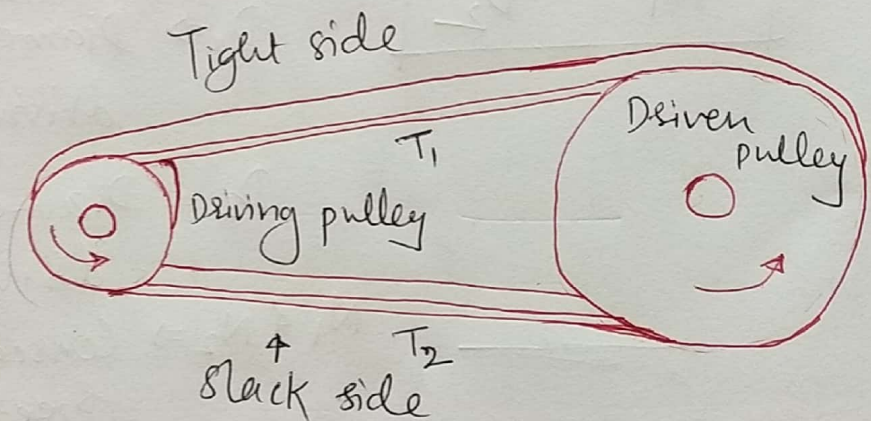 Tight side
T1
Driven
pulley
Driving pulley
T2
slack side